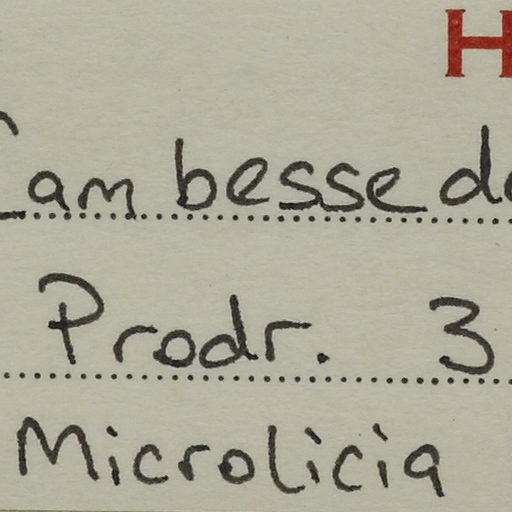 H
Cambessed
Prodr. 3
Microlicia